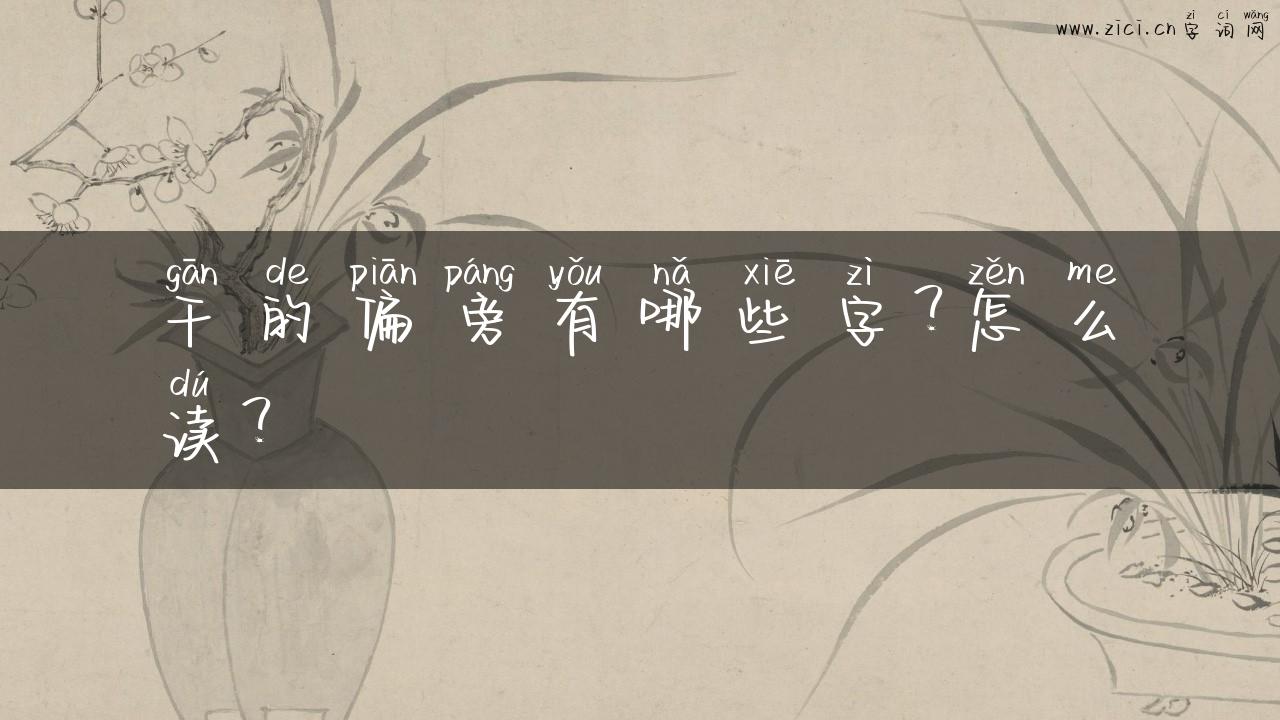 zì cí wǎng
www.zici.cn字词网
gān de piān páng yǒu nǎ xiē zì zěn me
干的偏旁有哪些字?怎么
dú
读?